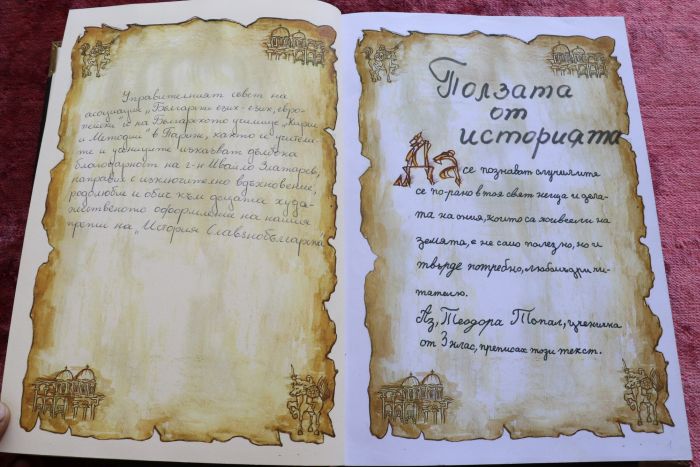 Управителният съвет на
асоциация „Български език - език, евро-
пейски" и на Българското училище „Кирил
и Методий" в Париж, както и учители-
те и учениците изказват дълбока
благодарност на г-н Ивайло Златарев,
направил с изключително вдохновение,
родолюбие и обич към децата худо-
жественото оформление на нашия
препис на „История Славянобългарска"
Ползата
от
историята
Да се познават случилите
се по-рано в тоя свят неща и дела-
та на ония, които са живеели на
земята, е не само полезно, но и
твърде потребно, любомъдри чи-
тателю.
Аз, Теодора Топал, ученичка
от 3 клас, преписах този текст.